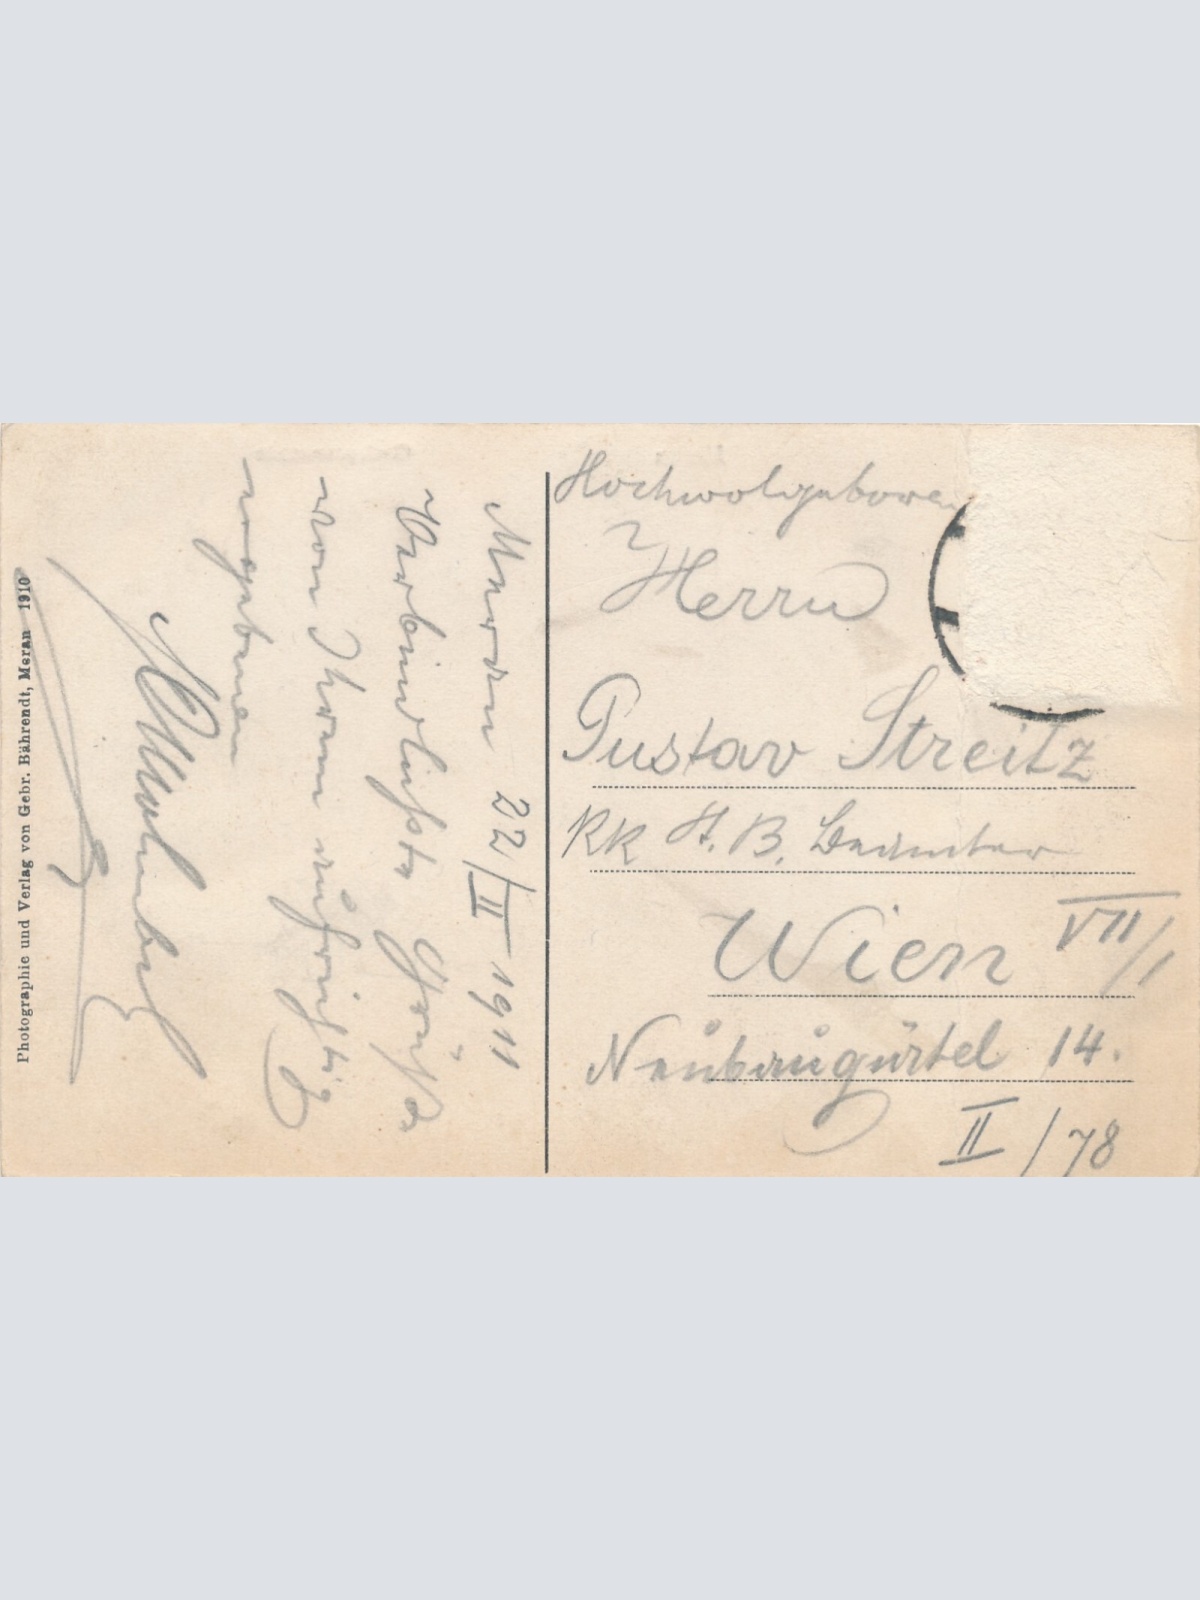 Meran 22/II 1911
Verbindlichste Grüße
von Ihrem aufrichtig
ergebenen
Hochwolgeboren
Herrn
Gustav Streitz
KK St. B. Beamter
Wien VII/1
Neubaugürtel 14.
II/78
Photographie und Verlag von Gebr. Bährendt, Meran 1910